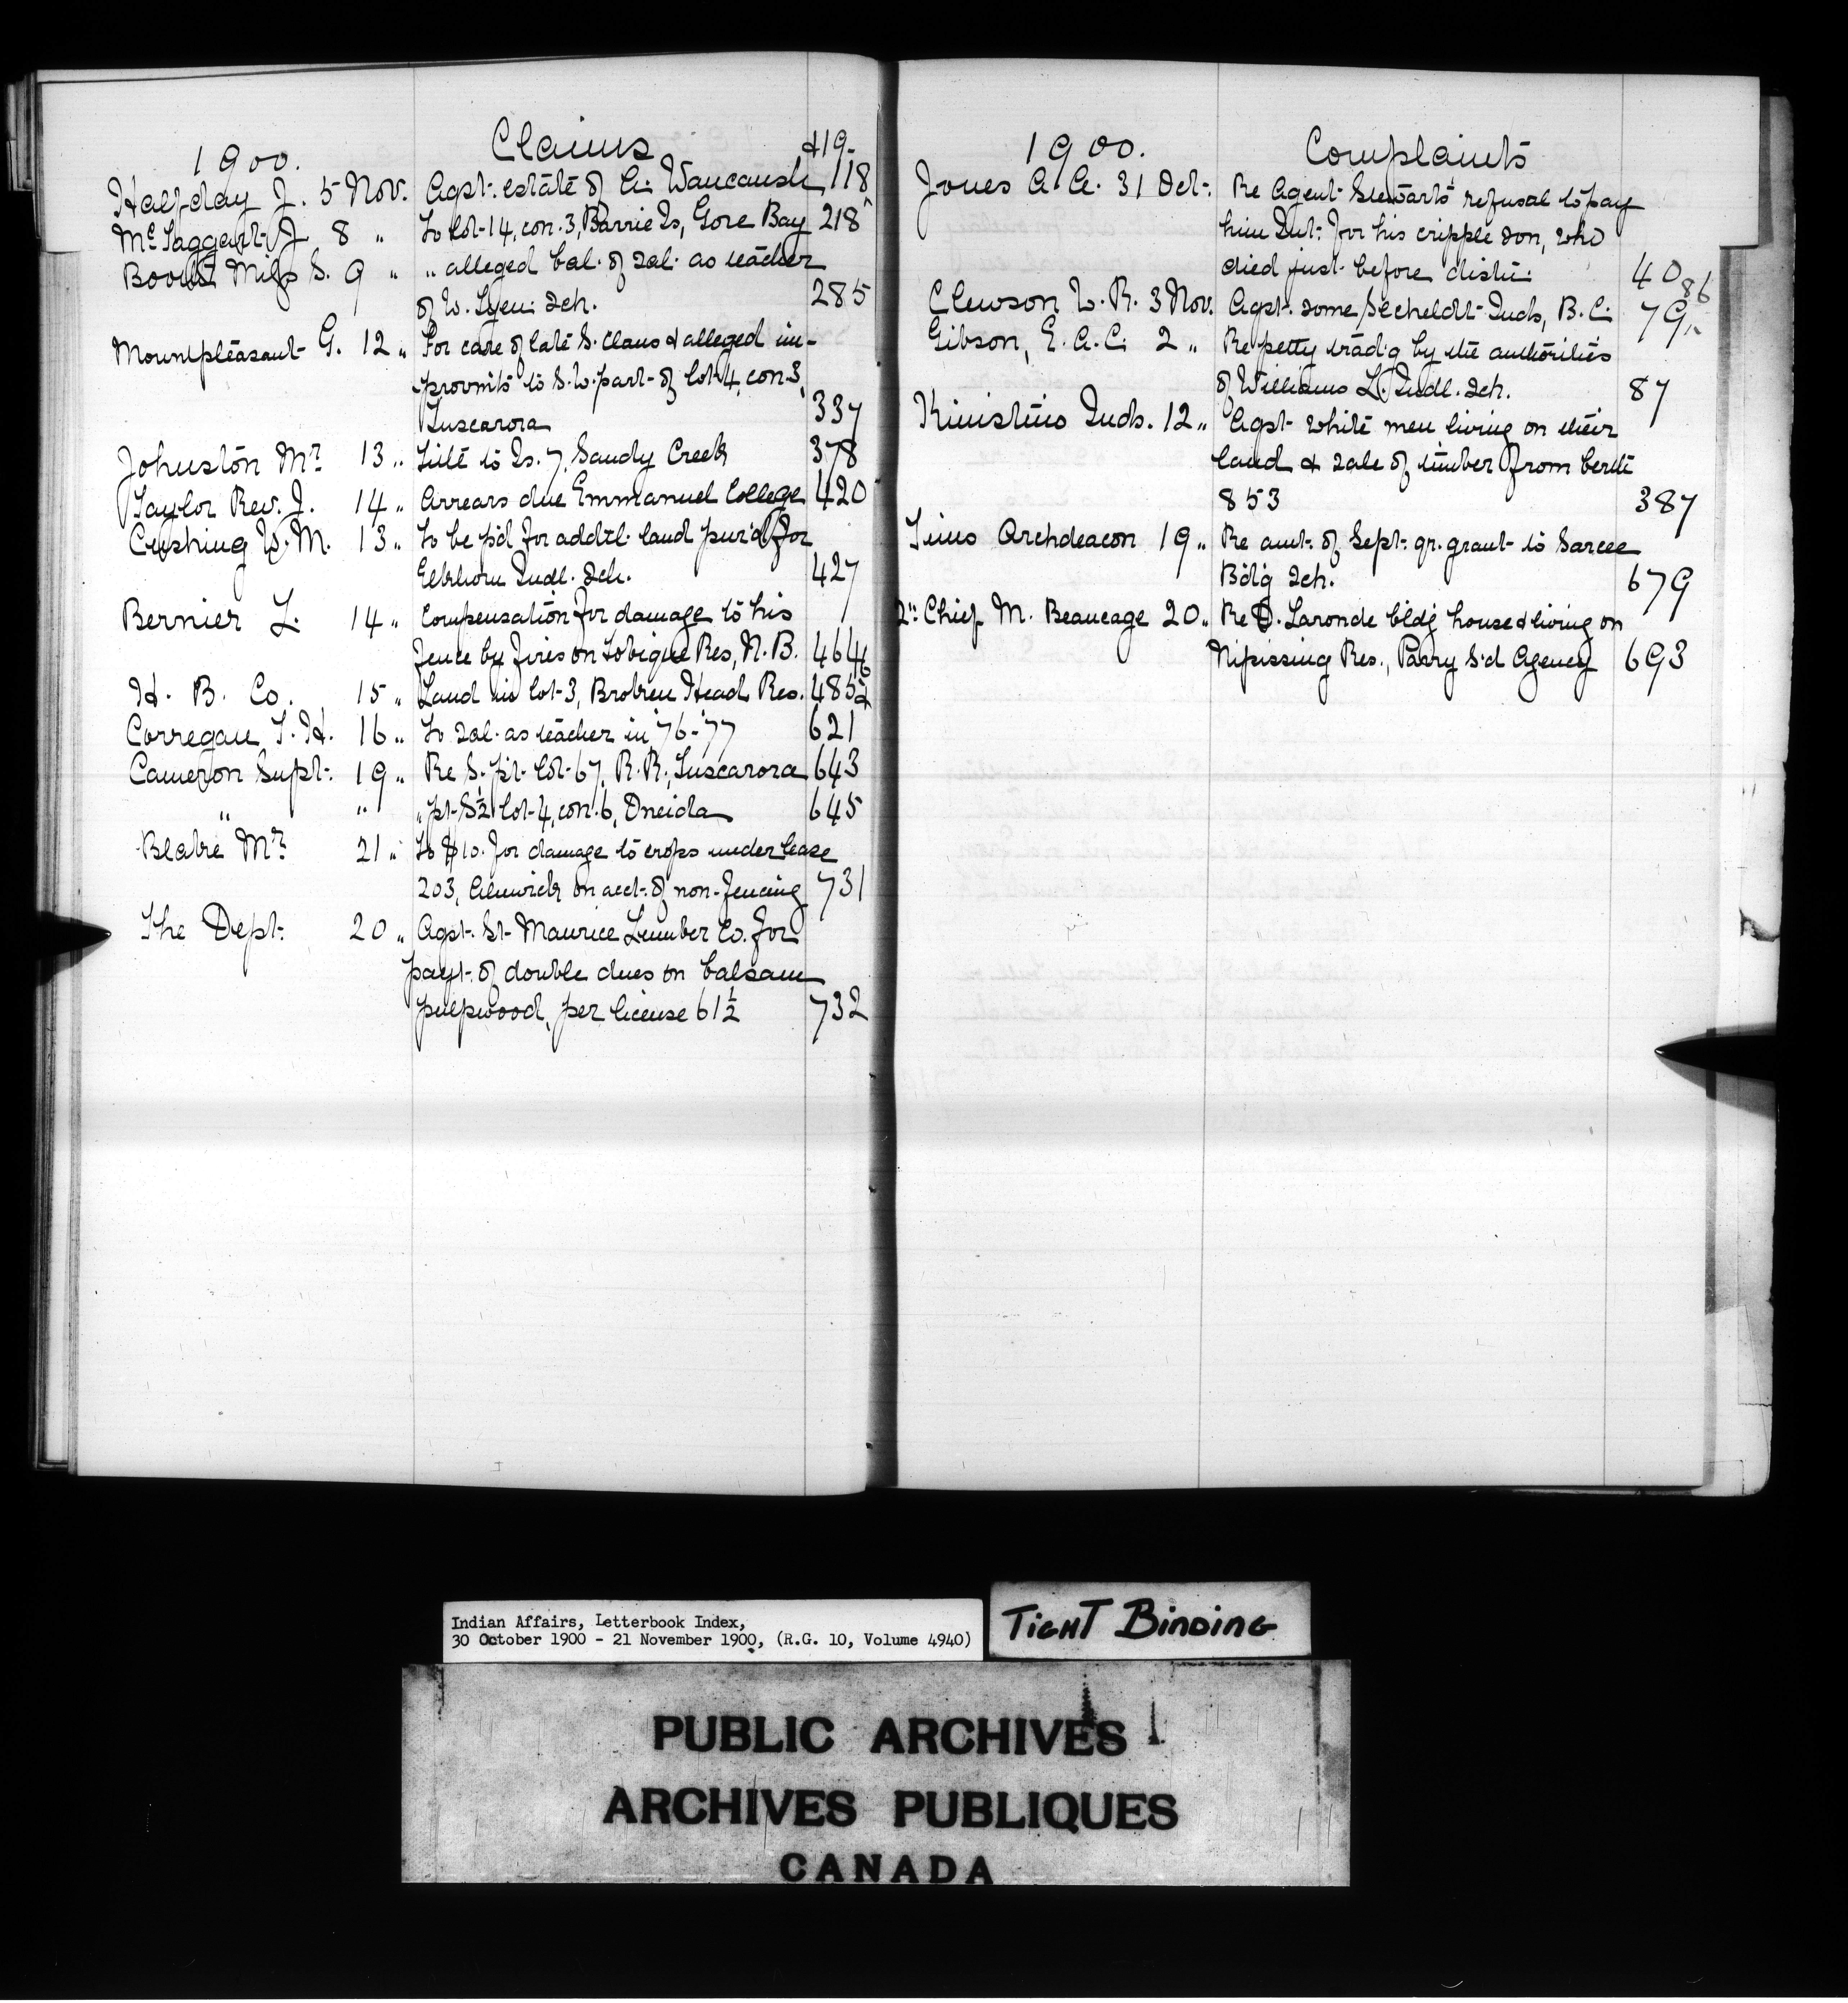 1900. Claims & 19-
Halfday J. 5 Nov. Agst. estate of A. Waucaush 118
McTaggart J 8 " To lot 14, con. 3, Barrie Is, Gore Bay 218
Miss S. 9 " " alleged bal. of sal. as teacher
of W. sch. 285
Mountpleasant G. 12 " For care of late S. Claus & alleged im-
provmts to S.W. part of lot 4, con. 3,
Tuscarora 337
Johnston Mr 13 " Title to Is. 7, Sandy Creek 378
Taylor Rev. J. 14 " Arrears due Emmanuel College 420
Cushing W. M. 13 " To be p'd for addtl. land pur'd for
Elkhorn Indl. Sch. 427
Bernier L. 14 " Compensation for damage to his
fence by fires on Tobique Res, N.B. 464
H. B. Co. 15 " Land in lot 3, Broken Head Res. 485
Corregan T. H. 16 " To sal. as teacher in '76-'77 621
Cameron Supt. 19 " Re S. pt. lot 67, R.R., Tuscarora 643
" " " pt. S½ lot 4, con. 6, Oneida 645
Mr 21 " To $10. for damage to crops under lease
203, Alnwick on acct. of non-fencing 731
The Dept. 20 " Agst. St. Maurice Lumber Co. for
payt. of double dues on balsam
pulpwood, per license 61½ 732
1900. Complaints
Jones A. A. 31 Oct. Re Agent Stewart's refusal to pay
him Int. for his cripple son, who
died just before distn. 40
Clewson W. R. 3 Nov. Agst. some Secheldt Inds, B.C. 79 86
Gibson, E. A. C. 2 " Re petty trad'g by the authorities
of Williams L. Indl. Sch. 87
Kinistino Inds. 12 " Agst. white men living on their
land & sale of timber from berth
853 387
Tims Archdeacon 19 " Re amt. of Sept. qr. grant to Sarcee
Bd'g Sch. 679
2nd Chief M. Beaucage 20 " Re D. Laronde bldg house & living on
Nipissing Res., Parry S'd Agency 693
Indian Affairs, Letterbook Index,
30 October 1900 - 21 November 1900, (R.G. 10, Volume 4940)
TIGHT BINDING
PUBLIC ARCHIVES
ARCHIVES PUBLIQUES
CANADA